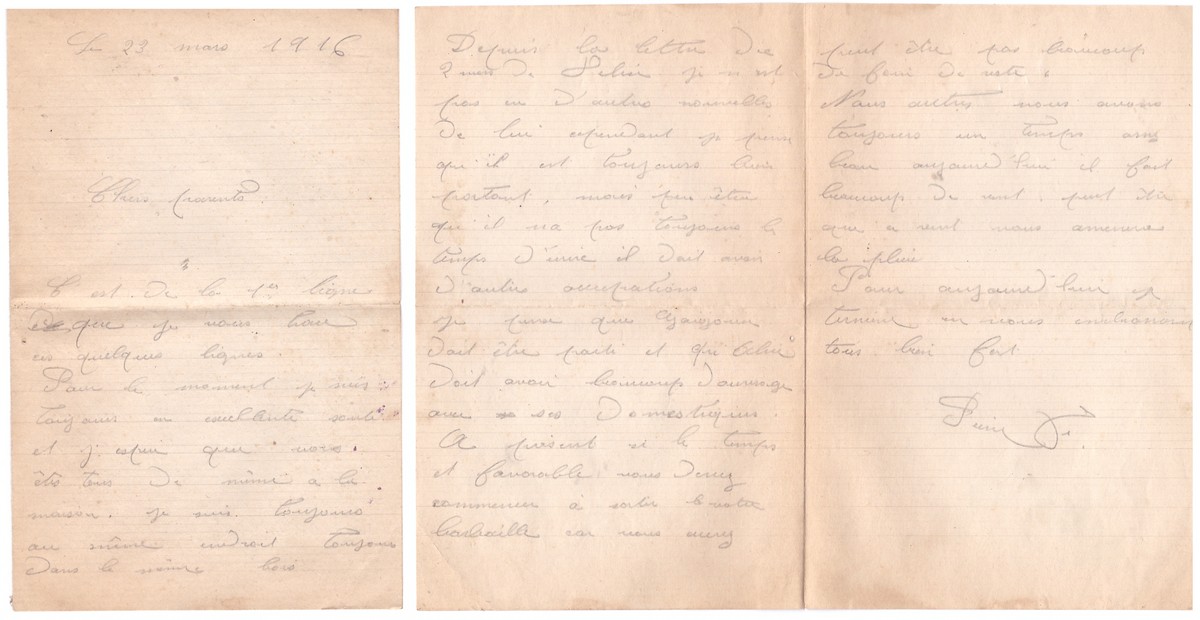 Le 23 mars 1916
Chers parents.
C est de la 1er ligne
que je vous
ces quelques lignes.
Pour le moment je suis
toujours en excellente santé
et j espere que vous
êtes tous de même a la
maison. je suis toujours
au même endroit toujours
dans le même bois
Depuis la lettre du
2 mars de je n est
pas eu d'autres nouvelles
de lui cependant je pense
qu'il est toujours bien
portant, mais peu être
qu'il na pas toujours le
temps d'écrire il doit avoir
d'autre occupations
je pense que
doit être parti et que
doit avoir beaucoup d'ouvrage
avec ses domestiques.
A présent si le temps
et favorable vous devez
commencer à sortir le votre
car vous avez
peut être pas beaucoup
de foin de reste.
Nous autres nous avons
toujours un temps assez
beau aujourd'hui il fait
beaucoup de vent. peut être
que ce vent nous amenera
la pluie
Pour aujourd'hui je
termine en vous embrassant
tous bien fort